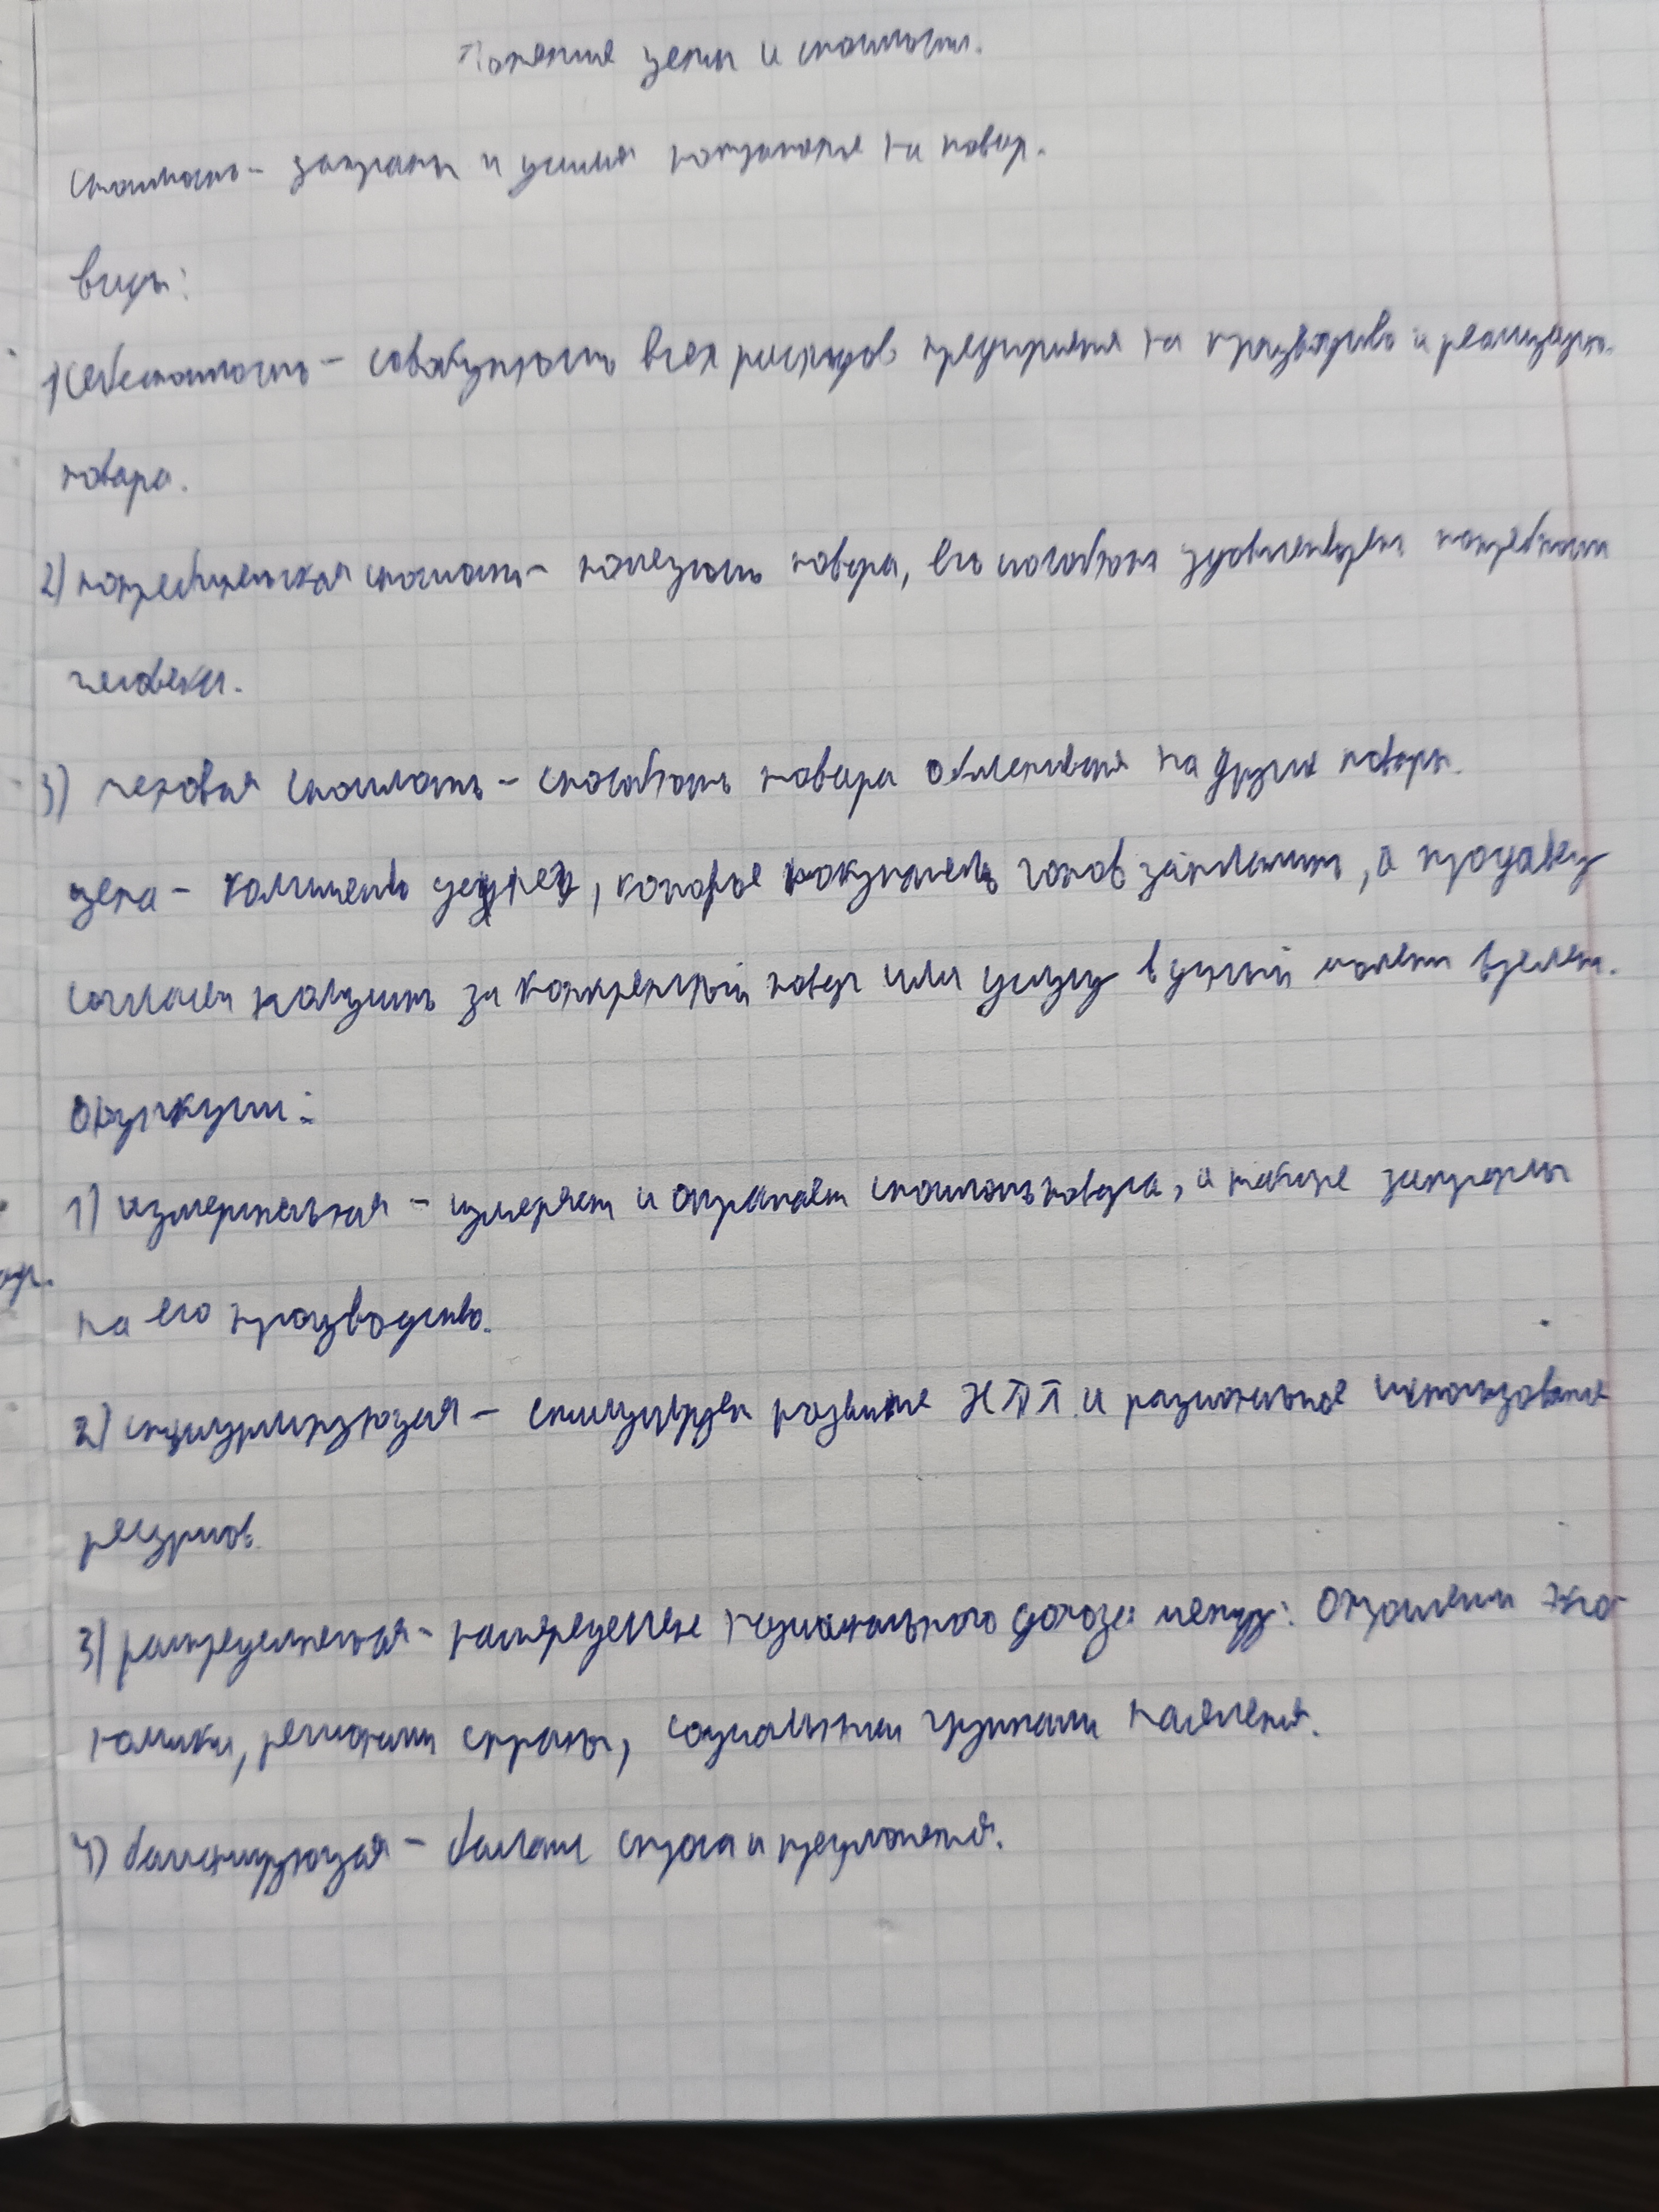 Понятие цены и стоимости.
Стоимость - затраты и усилия потраченые на товар.
Виды:
1) Себестоимость - совокупность всех расходов предприятия на производство и реализацию
товара.
2) потребительская стоимость - полезность товара, его способность удовлетворять потребности
человека.
3) меновая стоимость - способность товара обмениваться на другие товары.
Цена - количество денег, которое покупатель готов заплатить, а продавец
согласен получить за конкретный товар или услугу в данный момент времени.
Функции:
1) измерительная - измеряет и отражает стоимость товара, а также затраты
на его производство.
2) стимулирующая - стимулирует развитие НТП и рациональное использование
ресурсов.
3) распределительная - распределение национального дохода между: отраслями эко-
номики, регионами страны, социальными группами населения.
4) балансирующая - баланс спроса и предложения.